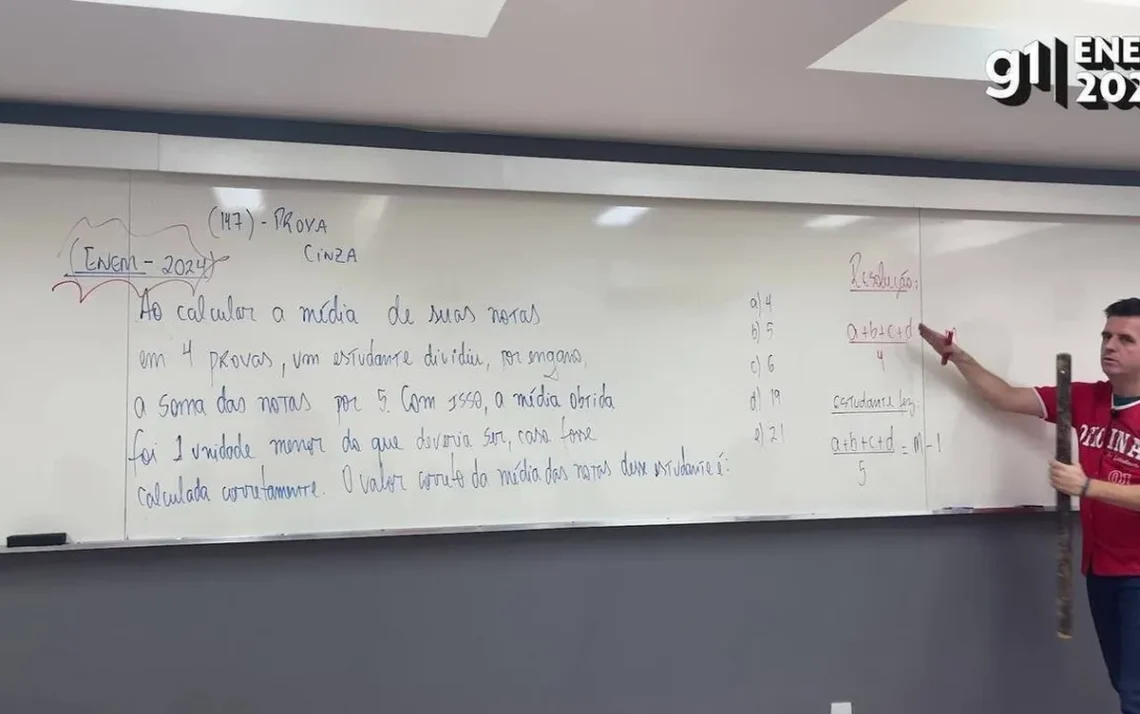 g1 ENE
202
(147) - PROVA
CINZA
(ENEM - 2024)
Ao calcular a média de suas notas
em 4 provas, um estudante dividiu, por engano,
a soma das notas por 5. Com isso, a média obtida
foi 1 unidade menor do que deveria ser, caso fosse
calculada corretamente. O valor correto da média das notas desse estudante é:
a) 4
b) 5
c) 6
d) 19
e) 21
Resolução:
a+b+c+d
4
estudante fez:
a+b+c+d = m - 1
5